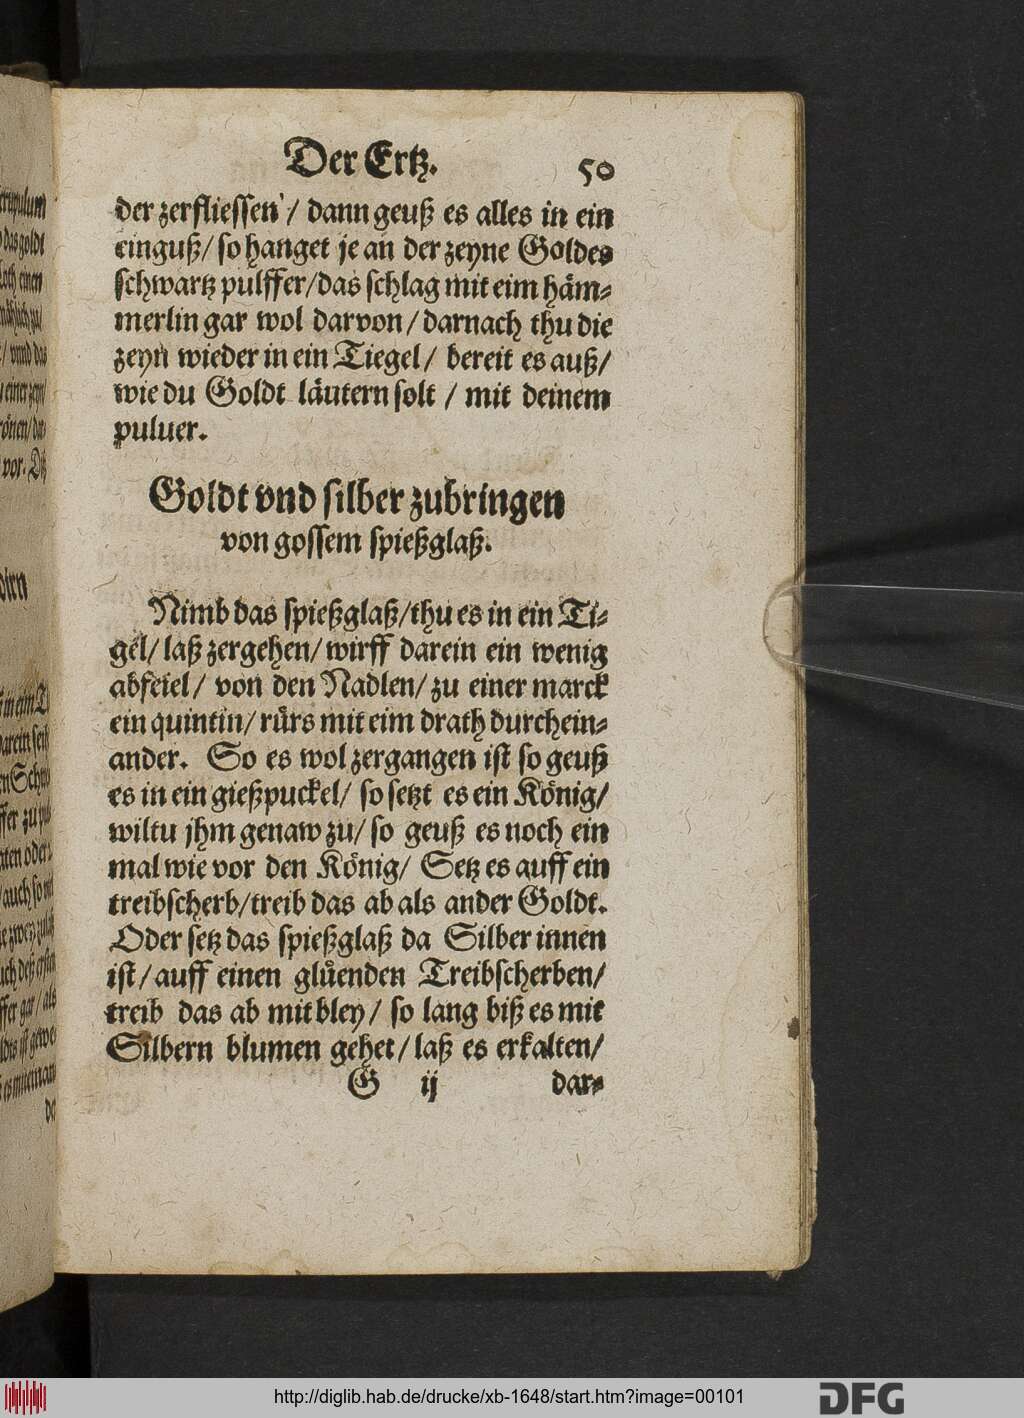 Der Ertz. 50
der zerfliessen / dann geuß es alles in ein
einguß / so hanget je an der zeyne Goldes
schwartz pulffer / das schlag mit eim häm⸗
merlin gar wol darvon / darnach thu die
zeyn wieder in ein Tiegel / bereit es auß /
wie du Goldt läutern solt / mit deinem
puluer.
Goldt vnd silber zubringen
von gossem spießglaß.
Nimb das spießglaß / thu es in ein Ti⸗
gel / laß zergehen / wirff darein ein wenig
abfeiel / von den Nadlen / zu einer marck
ein quintin / rürs mit eim drath durchein⸗
ander. So es wol zergangen ist so geuß
es in ein gießpuckel / so setzt es ein König /
wiltu jhm genaw zu / so geuß es noch ein
mal wie vor den König / Setz es auff ein
treibscherb / treib das ab als ander Goldt.
Oder setz das spießglaß da Silber innen
ist / auff einen glůenden Treibscherben /
treib das ab mit bley / so lang biß es mit
Silbern blumen gehet / laß es erkalten /
G ij dar⸗
http://diglib.hab.de/drucke/xb-1648/start.htm?image=00101
DFG